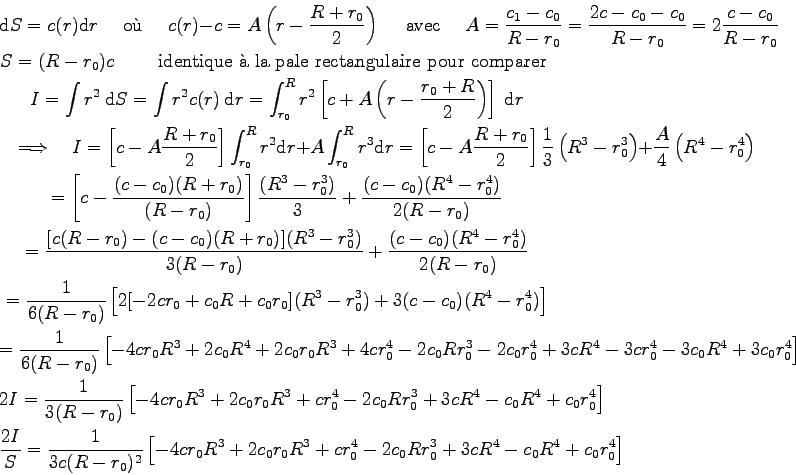 dS = c(r)dr où c(r)−c = A(r − (R + r₀)/2) avec A = (c₁ − c₀)/(R − r₀) = (2c − c₀ − c₀)/(R − r₀) = 2(c − c₀)/(R − r₀)
S = (R − r₀)c identique à la pale rectangulaire pour comparer
I = ∫ r² dS = ∫ r²c(r) dr = ∫_{r₀}^{R} r² [c + A(r − (r₀ + R)/2)] dr
⟹ I = [c − A(R + r₀)/2] ∫_{r₀}^{R} r²dr + A ∫_{r₀}^{R} r³dr = [c − A(R + r₀)/2] 1/3 (R³ − r₀³) + A/4 (R⁴ − r₀⁴)
= [c − (c − c₀)(R + r₀)/(R − r₀)] (R³ − r₀³)/3 + (c − c₀)(R⁴ − r₀⁴)/2(R − r₀)
= [c(R − r₀) − (c − c₀)(R + r₀)](R³ − r₀³)/3(R − r₀) + (c − c₀)(R⁴ − r₀⁴)/2(R − r₀)
= 1/6(R − r₀) [2[−2cr₀ + c₀R + c₀r₀](R³ − r₀³) + 3(c − c₀)(R⁴ − r₀⁴)]
= 1/6(R − r₀) [−4cr₀R³ + 2c₀R⁴ + 2c₀r₀R³ + 4cr₀⁴ − 2c₀Rr₀³ − 2c₀r₀⁴ + 3cR⁴ − 3cr₀⁴ − 3c₀R⁴ + 3c₀r₀⁴]
2I = 1/3(R − r₀) [−4cr₀R³ + 2c₀r₀R³ + cr₀⁴ − 2c₀Rr₀³ + 3cR⁴ − c₀R⁴ + c₀r₀⁴]
2I/S = 1/3c(R − r₀)² [−4cr₀R³ + 2c₀r₀R³ + cr₀⁴ − 2c₀Rr₀³ + 3cR⁴ − c₀R⁴ + c₀r₀⁴]